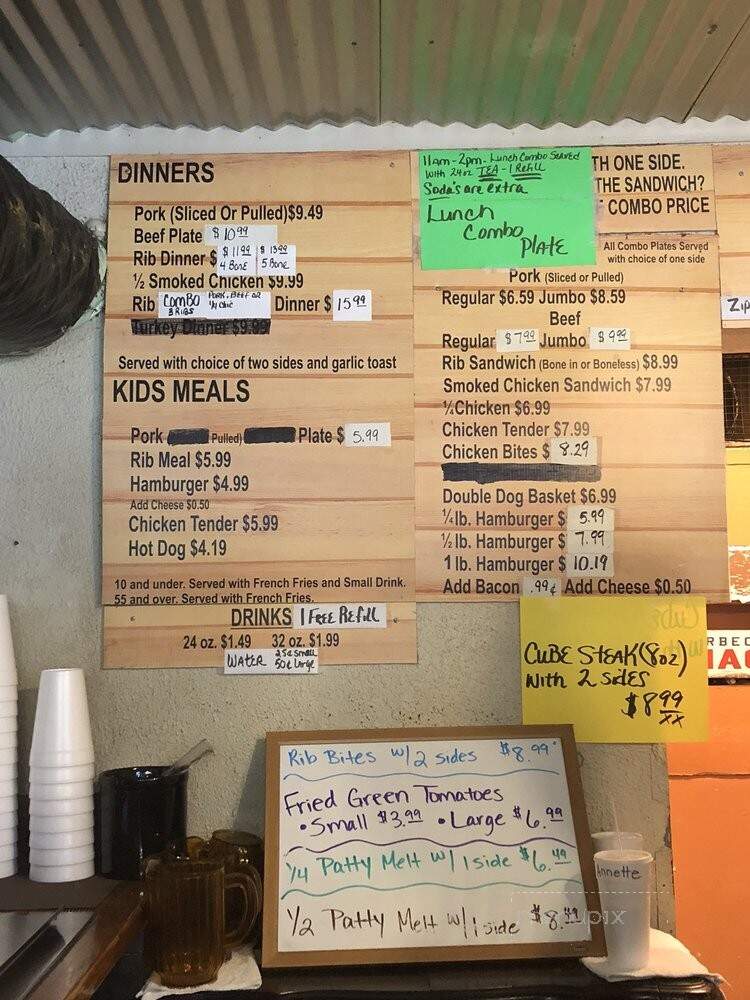 DINNERS
Pork (Sliced Or Pulled)$9.49
Beef Plate $10.99
Rib Dinner $ $11.99 4 Bone $13.99 5 Bone
½ Smoked Chicken $9.99
Rib Combo 3 RIBS PORK, BEEF OR ¼ Chic Dinner $15.99
Turkey Dinner $9.99
Served with choice of two sides and garlic toast
KIDS MEALS
Pork Pulled) Plate $ 5.99
Rib Meal $5.99
Hamburger $4.99
Add Cheese $0.50
Chicken Tender $5.99
Hot Dog $4.19
10 and under. Served with French Fries and Small Drink.
55 and over. Served with French Fries.
DRINKS 1 FREE Refill
24 oz. $1.49 32 oz. $1.99
WATER 25¢ Small 50¢ Large
11am-2pm. Lunch Combo Served
With 24oz TEA-1 Refill
Soda's are extra
Lunch
Combo
Plate
TH ONE SIDE.
THE SANDWICH?
COMBO PRICE
All Combo Plates Served
with choice of one side
Pork (Sliced or Pulled)
Regular $6.59 Jumbo $8.59
Beef
Regular $7.99 Jumbo $9.99
Rib Sandwich (Bone in or Boneless) $8.99
Smoked Chicken Sandwich $7.99
¼Chicken $6.99
Chicken Tender $7.99
Chicken Bites $ 8.29
Double Dog Basket $6.99
¼ lb. Hamburger $ 5.99
½ lb. Hamburger $ 7.99
1 lb. Hamburger $ 10.19
Add Bacon .99¢ Add Cheese $0.50
Zip
CUBE STEAK (8oz)
With 2 Sides
$8.99
xx
RBEC
Rib Bites w/2 sides $8.99
Fried Green Tomatoes
• Small $3.99 • Large $6.99
1/4 Patty Melt w/ 1 side $6.49
1/2 Patty Melt w/ 1 side $8.49
Annette